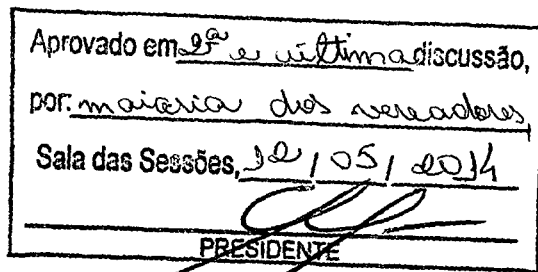 Aprovado em 2ª e última discussão,
por: maioria dos vereadores
Sala das Sessões, 12 / 05 / 2014
PRESIDENTE